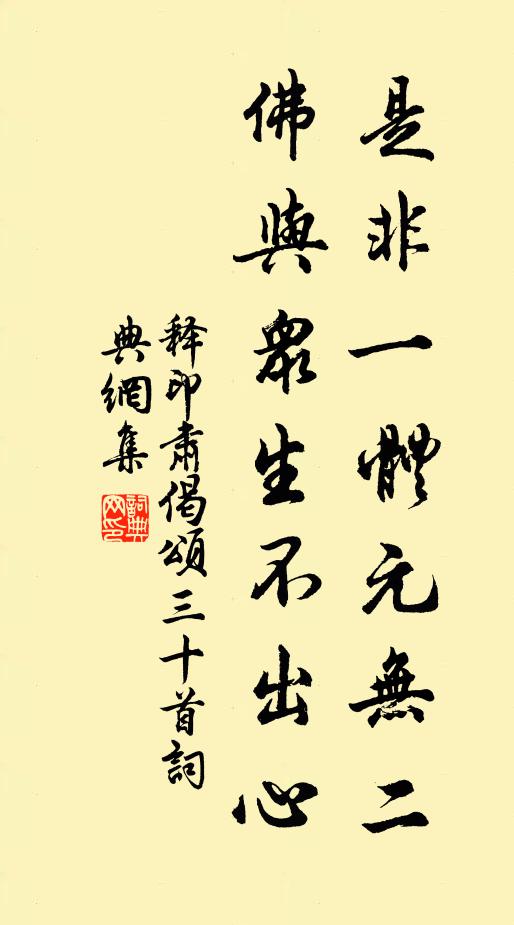 是非一體元無二
佛與眾生不出心
释印肅偈頌三十首詞
典網集
詞典網印